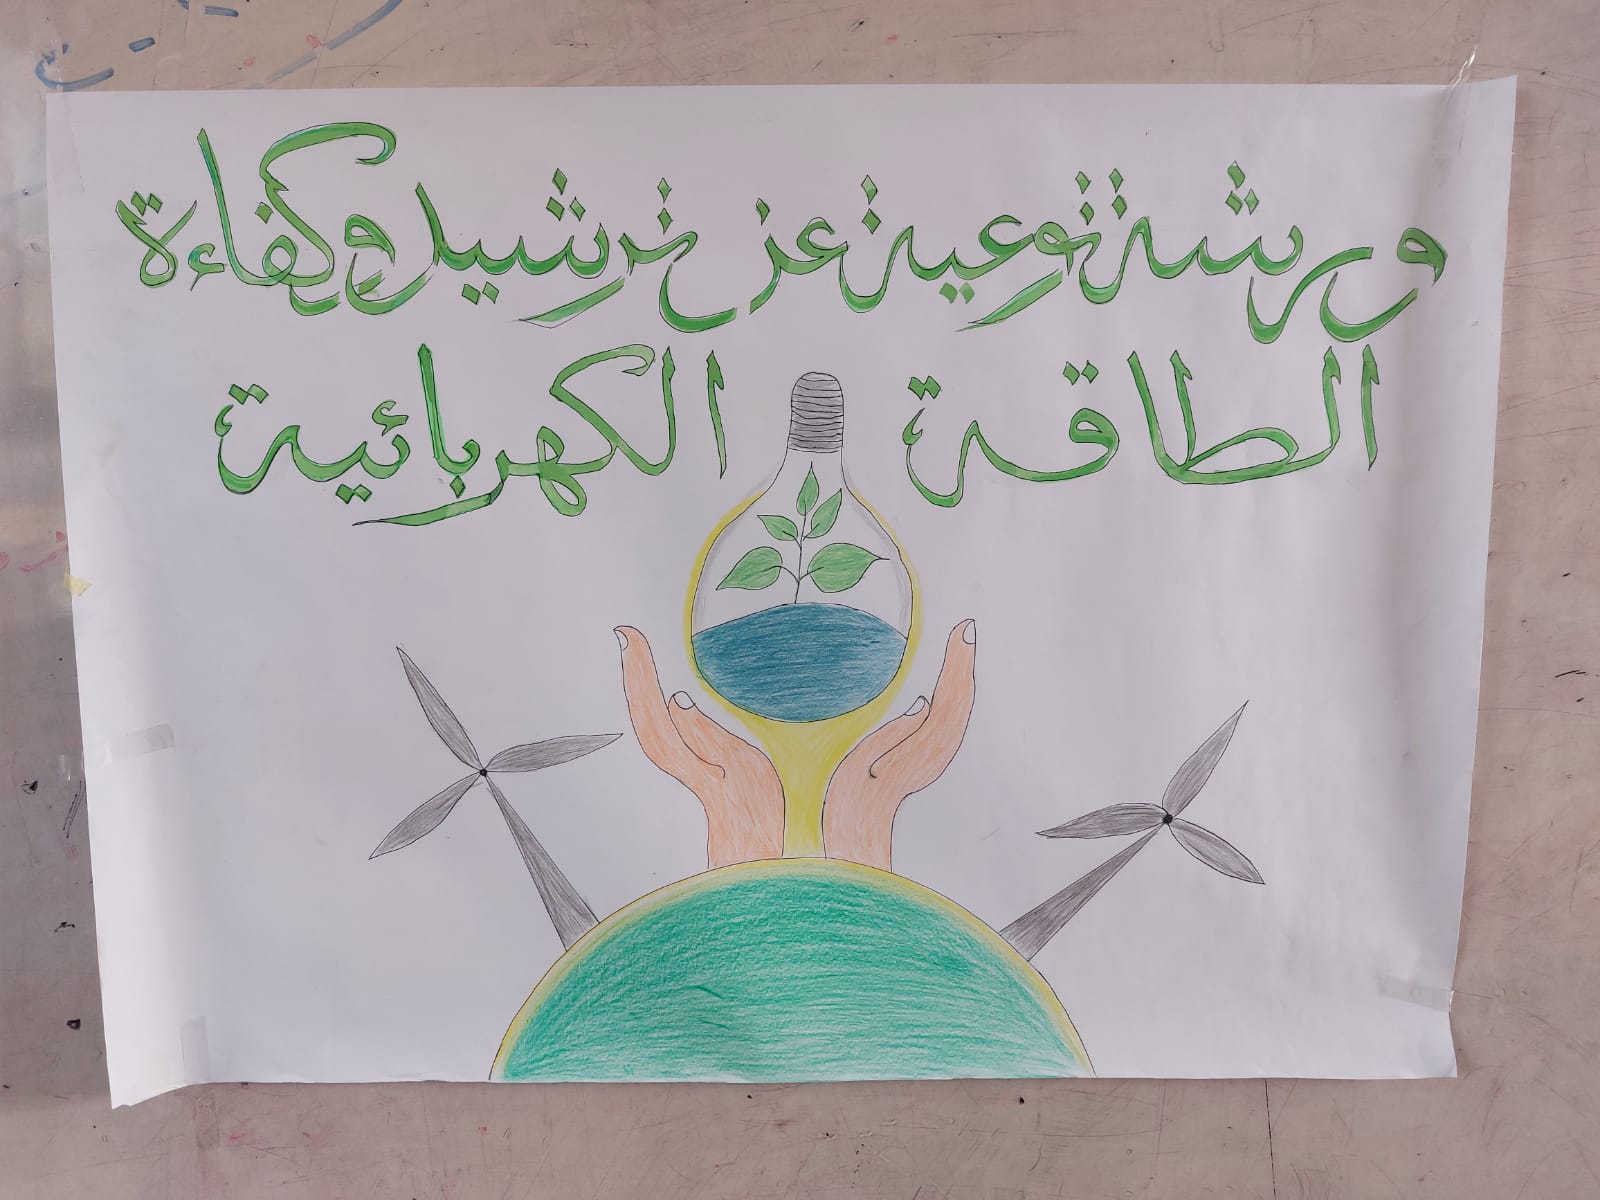 ورشة توعية عن ترشيد وكفاءة
الطاقة الكهربائية